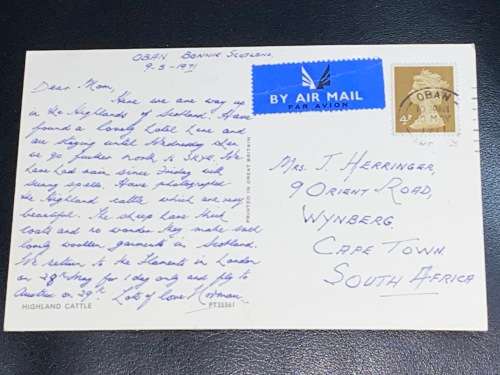 OBAN BONNIE SCOTLAND.
9-5-1971
Dear Mom,
Here we are way up
in the Highlands of Scotland. Have
found a lovely hotel here and
are staying until Wednesday when
we go further north to SKYE. We
have had rain since Friday with
sunny spells. Have photographed
the Highland cattle which are very
beautiful. The sheep have thick
coats and no wonder they make such
lovely woollen garments in Scotland.
We return to the in London
on 28th May for 1 day only and fly to
on 29th. Lots of love Norman.
HIGHLAND CATTLE
PT35561
PRINTED IN GREAT BRITAIN
BY AIR MAIL
PAR AVION
OBAN
4P
MRS. J. HERRINGER,
9 ORIENT ROAD,
WYNBERG.
CAPE TOWN.
SOUTH AFRICA